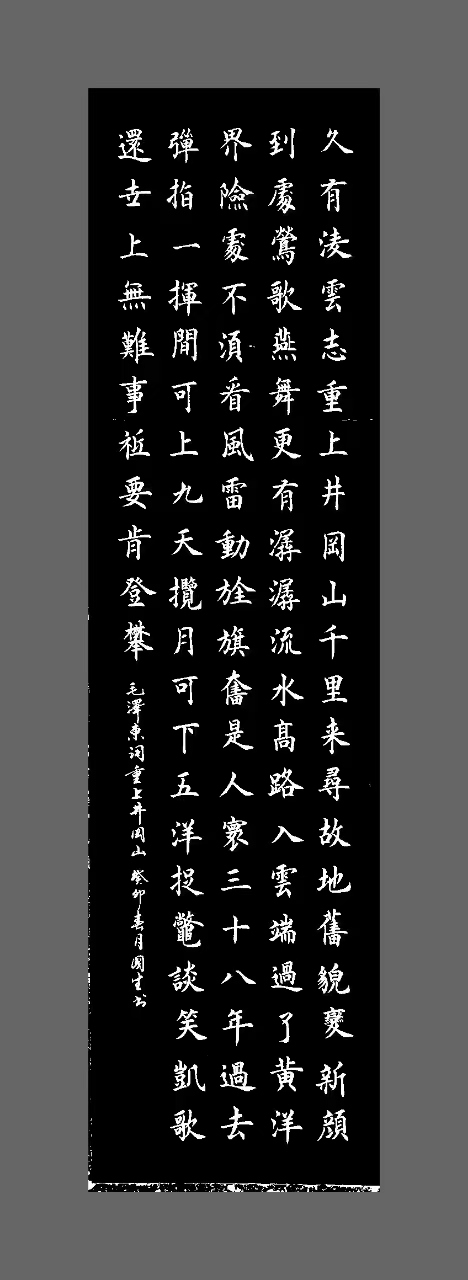 久有淩雲志重上井岡山千里来尋故地舊貌變新顔
到處鶯歌燕舞更有潺潺流水髙路入雲端過了黄洋
界險處不湏看風雷動旌旗奮是人寰三十八年過去
彈指一揮間可上九天攬月可下五洋捉鼈談笑凱歌
還世上無難事祗要肯登攀
毛澤東詞重上井岡山 癸卯春月國生书